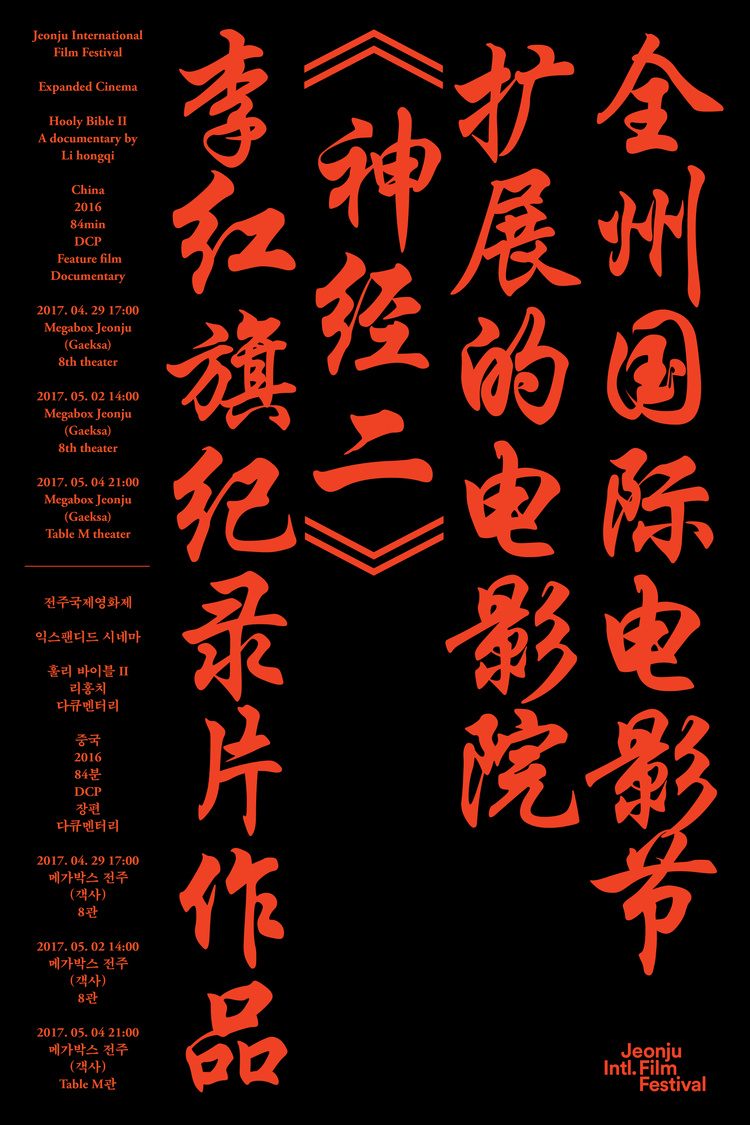 全州国际电影节
扩展的电影院
《神经二》
李红旗纪录片作品
Jeonju International
Film Festival
Expanded Cinema
Hooly Bible II
A documentary by
Li hongqi
China
2016
84min
DCP
Feature film
Documentary
2017. 04. 29 17:00
Megabox Jeonju
(Gaeksa)
8th theater
2017. 05. 02 14:00
Megabox Jeonju
(Gaeksa)
8th theater
2017. 05. 04 21:00
Megabox Jeonju
(Gaeksa)
Table M theater
전주국제영화제
익스팬디드 시네마
훌리 바이블 II
리홍치
다큐멘터리
중국
2016
84분
DCP
장편
다큐멘터리
2017. 04. 29 17:00
메가박스 전주
(객사)
8관
2017. 05. 02 14:00
메가박스 전주
(객사)
8관
2017. 05. 04 21:00
메가박스 전주
(객사)
Table M관
Jeonju
Intl. Film
Festival